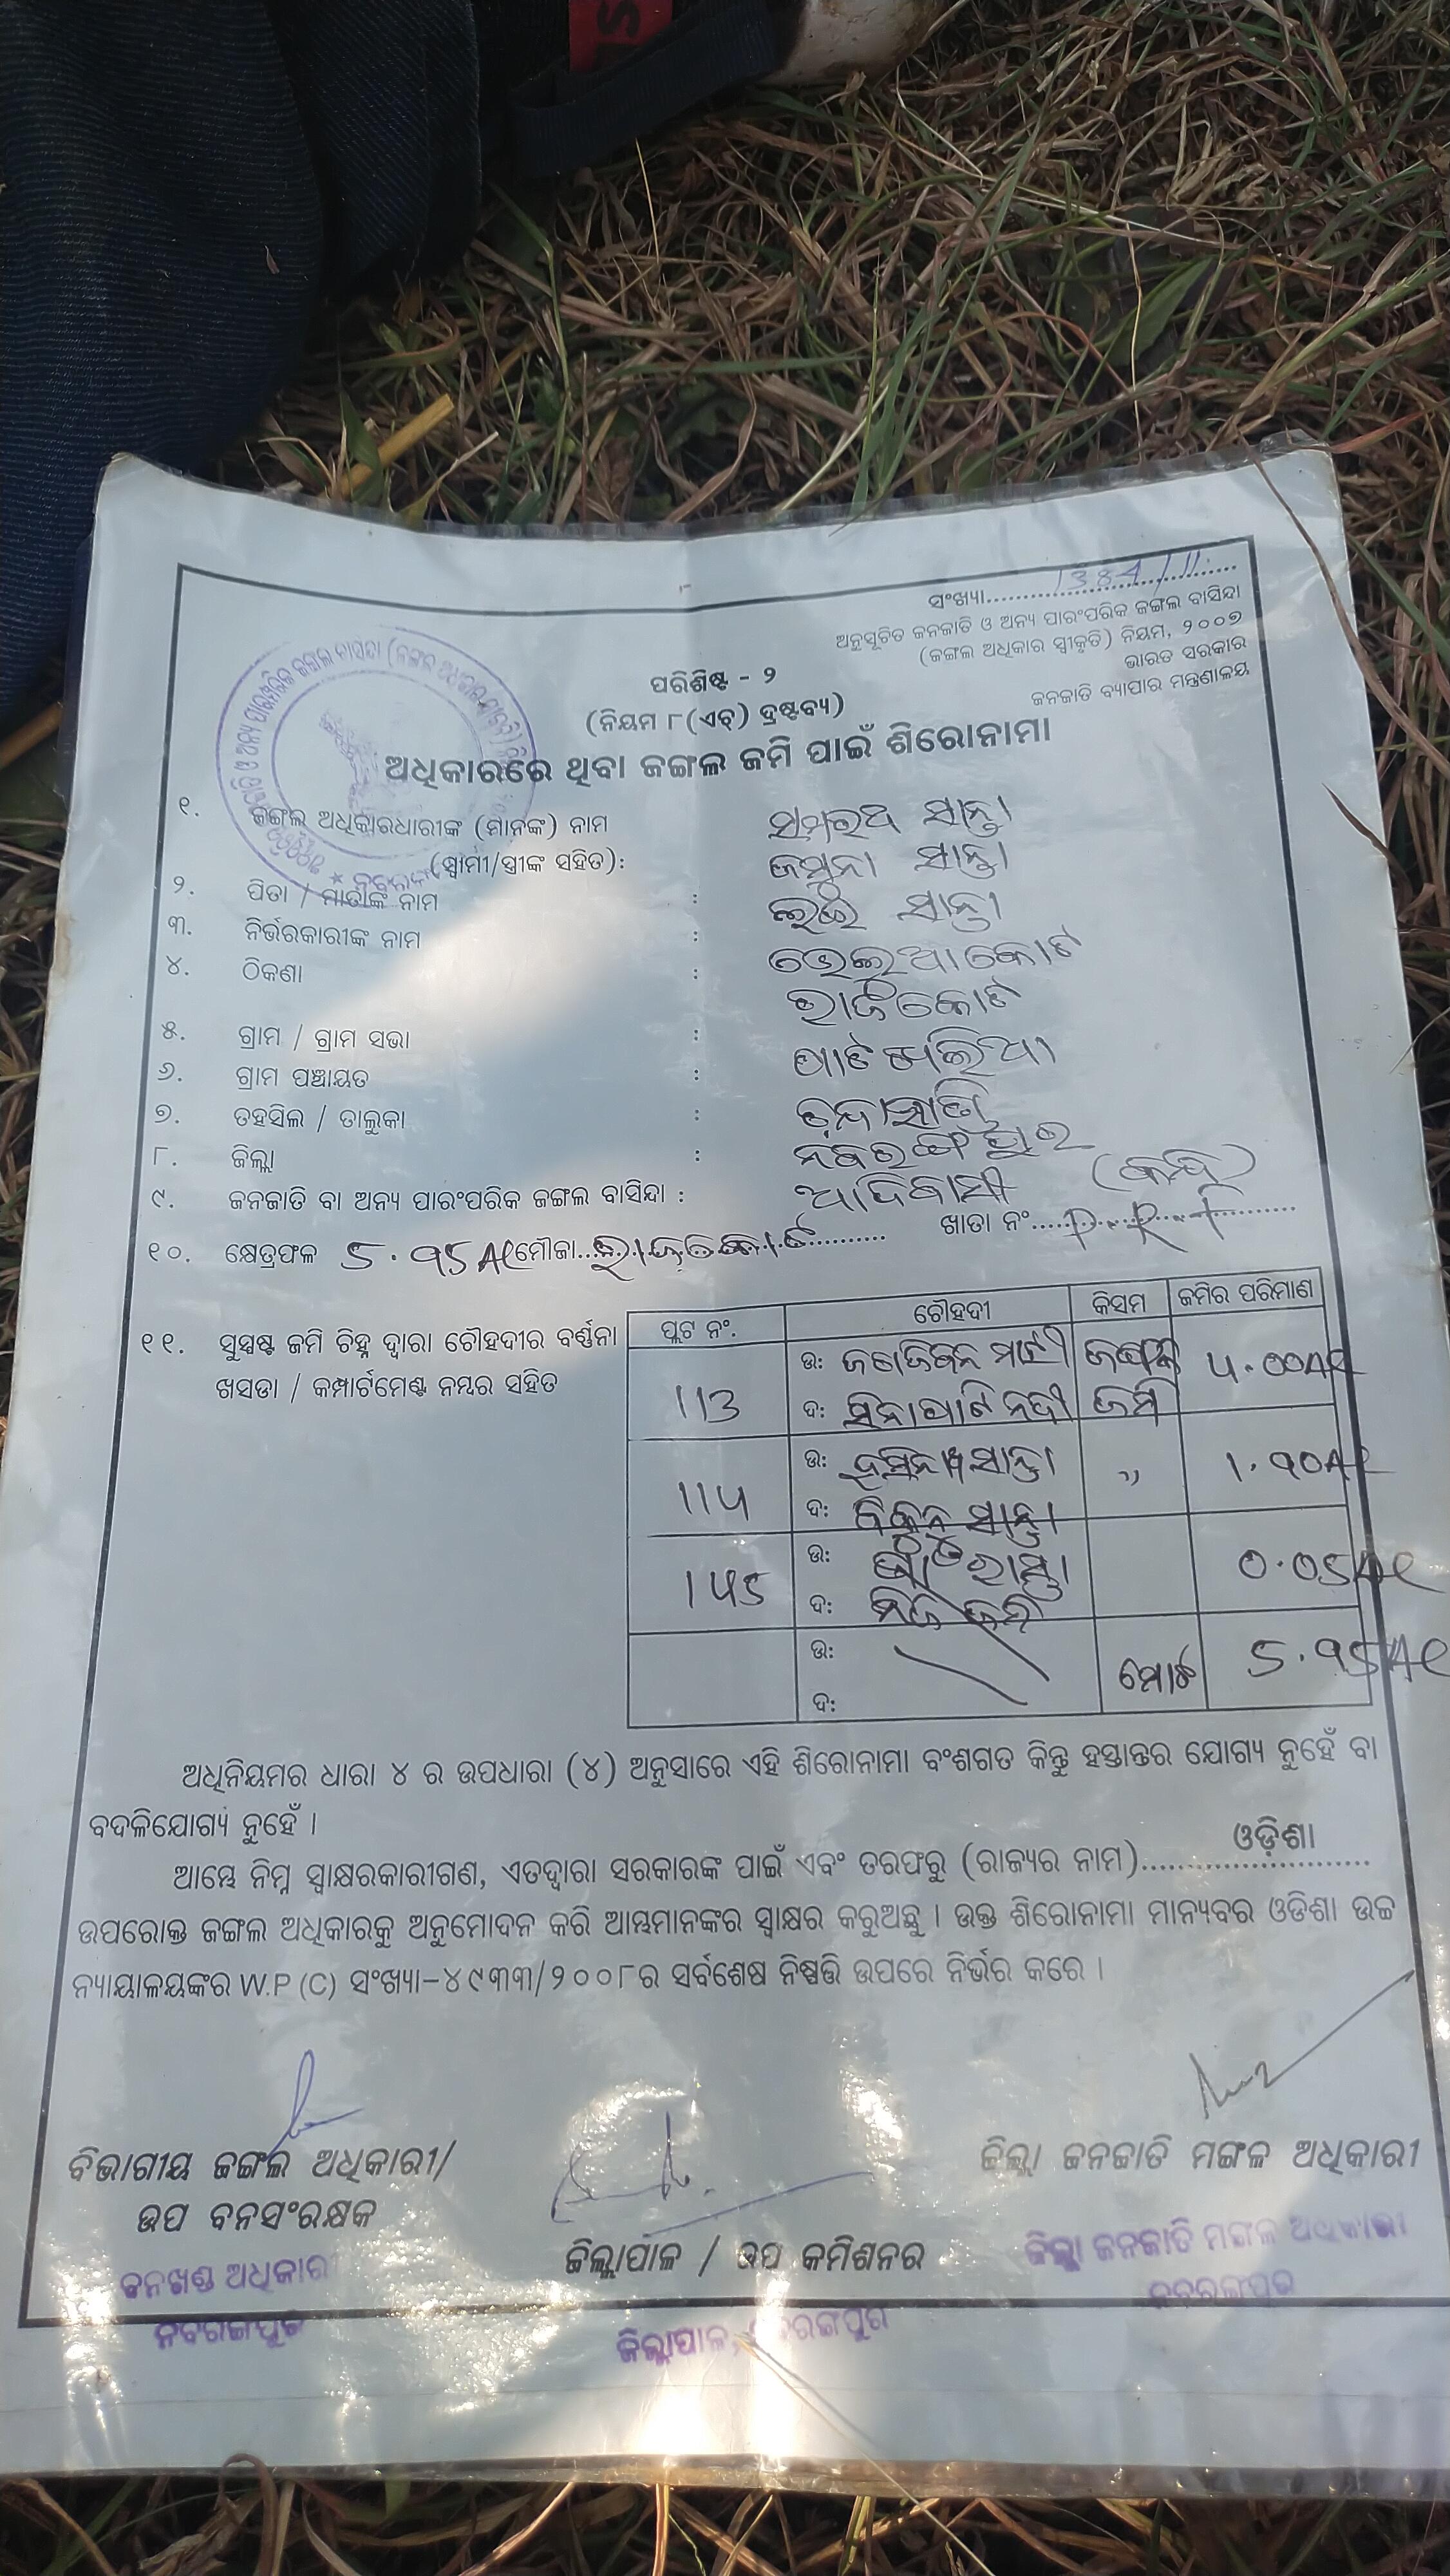 ସଂଖ୍ୟା.......1384/11..........
ଅନୁସୂଚିତ ଜନଜାତି ଓ ଅନ୍ୟ ପାରଂପରିକ ଜଙ୍ଗଲ ବାସିନ୍ଦା
(ଜଙ୍ଗଲ ଅଧିକାର ସ୍ୱୀକୃତି) ନିୟମ, ୨୦୦୭
ଭାରତ ସରକାର
ଜନଜାତି ବ୍ୟାପାର ମନ୍ତ୍ରଣାଳୟ
ପରିଶିଷ୍ଟ - ୨
(ନିୟମ ୮(ଏଚ୍) ଦ୍ରଷ୍ଟବ୍ୟ)
ଅଧିକାରରେ ଥିବା ଜଙ୍ଗଲ ଜମି ପାଇଁ ଶିରୋନାମା
୧. ଜଙ୍ଗଲ ଅଧିକାରଧାରୀଙ୍କ (ମାନଙ୍କ) ନାମ ସାନ୍ତା
(ସ୍ୱାମୀ/ସ୍ତ୍ରୀଙ୍କ ସହିତ): ଜମୁନା ସାନ୍ତା
୨. ପିତା / ମାତାଙ୍କ ନାମ : ସାନ୍ତା
୩. ନିର୍ଭରକାରୀଙ୍କ ନାମ :
୪. ଠିକଣା : ରାଜକୋଟ
୫. ଗ୍ରାମ / ଗ୍ରାମ ସଭା :
୬. ଗ୍ରାମ ପଞ୍ଚାୟତ :
୭. ତହସିଲ / ତାଲୁକା :
୮. ଜିଲ୍ଲା : ନବରଙ୍ଗପୁର
୯. ଜନଜାତି ବା ଅନ୍ୟ ପାରଂପରିକ ଜଙ୍ଗଲ ବାସିନ୍ଦା : ଆଦିବାସୀ
୧୦. କ୍ଷେତ୍ରଫଳ 5.95 Ac ମୌଜା...ରାଜକୋଟ.......... ଖାତା ନଂ......................
୧୧. ସୁସ୍ପଷ୍ଟ ଜମି ଚିହ୍ନ ଦ୍ୱାରା ଚୌହଦୀର ବର୍ଣ୍ଣନା
ଖସଡା / କମ୍ପାର୍ଟମେଣ୍ଟ ନମ୍ବର ସହିତ
ପ୍ଲଟ ନଂ. ଚୌହଦୀ କିସମ ଜମିର ପରିମାଣ
113 ଉ: ଜଙ୍ଗଲ 4.00Ac
ଦ: ନଦୀ ଜମି
114 ଉ: ସାନ୍ତା ,, 1.90Ac
ଦ: ସାନ୍ତା
145 ଉ: ରାସ୍ତା 0.05Ac
ଦ: ନିଜ ଜମି
ଉ: ମୋଟ 5.95Ac
ଦ:
ଅଧିନିୟମର ଧାରା ୪ ର ଉପଧାରା (୪) ଅନୁସାରେ ଏହି ଶିରୋନାମା ବଂଶଗତ କିନ୍ତୁ ହସ୍ତାନ୍ତର ଯୋଗ୍ୟ ନୁହେଁ ବା
ବଦଳିଯୋଗ୍ୟ ନୁହେଁ ।
ଆମ୍ଭେ ନିମ୍ନ ସ୍ୱାକ୍ଷରକାରୀଗଣ, ଏତଦ୍ୱାରା ସରକାରଙ୍କ ପାଇଁ ଏବଂ ତରଫରୁ (ରାଜ୍ୟର ନାମ)......ଓଡ଼ିଶା..........
ଉପରୋକ୍ତ ଜଙ୍ଗଲ ଅଧିକାରକୁ ଅନୁମୋଦନ କରି ଆମ୍ଭମାନଙ୍କର ସ୍ୱାକ୍ଷର କରୁଅଛୁ । ଉକ୍ତ ଶିରୋନାମା ମାନ୍ୟବର ଓଡିଶା ଉଚ୍ଚ
ନ୍ୟାୟାଳୟଙ୍କର W.P (C) ସଂଖ୍ୟା-୪୯୩୩/୨୦୦୮ର ସର୍ବଶେଷ ନିଷ୍ପତ୍ତି ଉପରେ ନିର୍ଭର କରେ ।
ବିଭାଗୀୟ ଜଙ୍ଗଲ ଅଧିକାରୀ/
ଉପ ବନସଂରକ୍ଷକ
ବନଖଣ୍ଡ ଅଧିକାରୀ
ନବରଙ୍ଗପୁର
ଜିଲ୍ଲାପାଳ / ଉପ କମିଶନର
ଜିଲ୍ଲାପାଳ, ନବରଙ୍ଗପୁର
ଜିଲ୍ଲା ଜନଜାତି ମଙ୍ଗଳ ଅଧିକାରୀ
ଜିଲ୍ଲା ଜନଜାତି ମଙ୍ଗଳ ଅଧିକାରୀ
ନବରଙ୍ଗପୁର